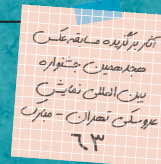 آثار برگزیده مسابقه عکس
هجدهمین جشنواره
بین المللی نمایش
عروسکی تهران - مبارک
٦٣